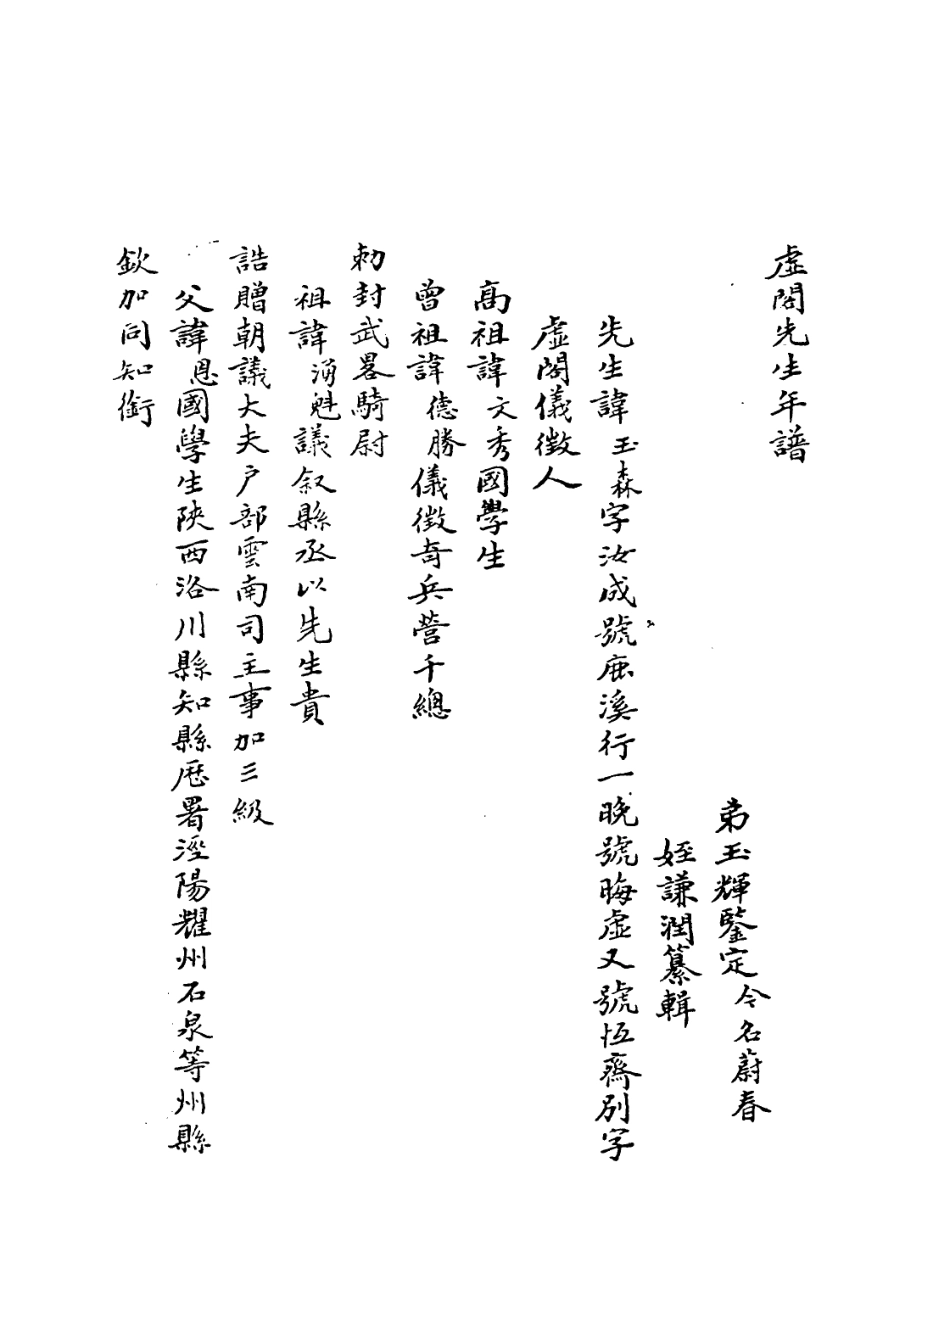 虛閣先生年譜
弟玉輝鑒定今名蔚春
姪謙潤纂輯
先生諱玉森字汝成號鹿溪行一晚號晦虛又號恆齋別字
虛閣儀徵人
高祖諱文秀國學生
曾祖諱德勝儀徵奇兵營千總
勅封武畧騎尉
祖諱湧魁議叙縣丞以先生貴
誥贈朝議大夫户部雲南司主事加三級
父諱恩國學生陝西洛川縣知縣歷署涇陽耀州石泉等州縣
欽加同知銜